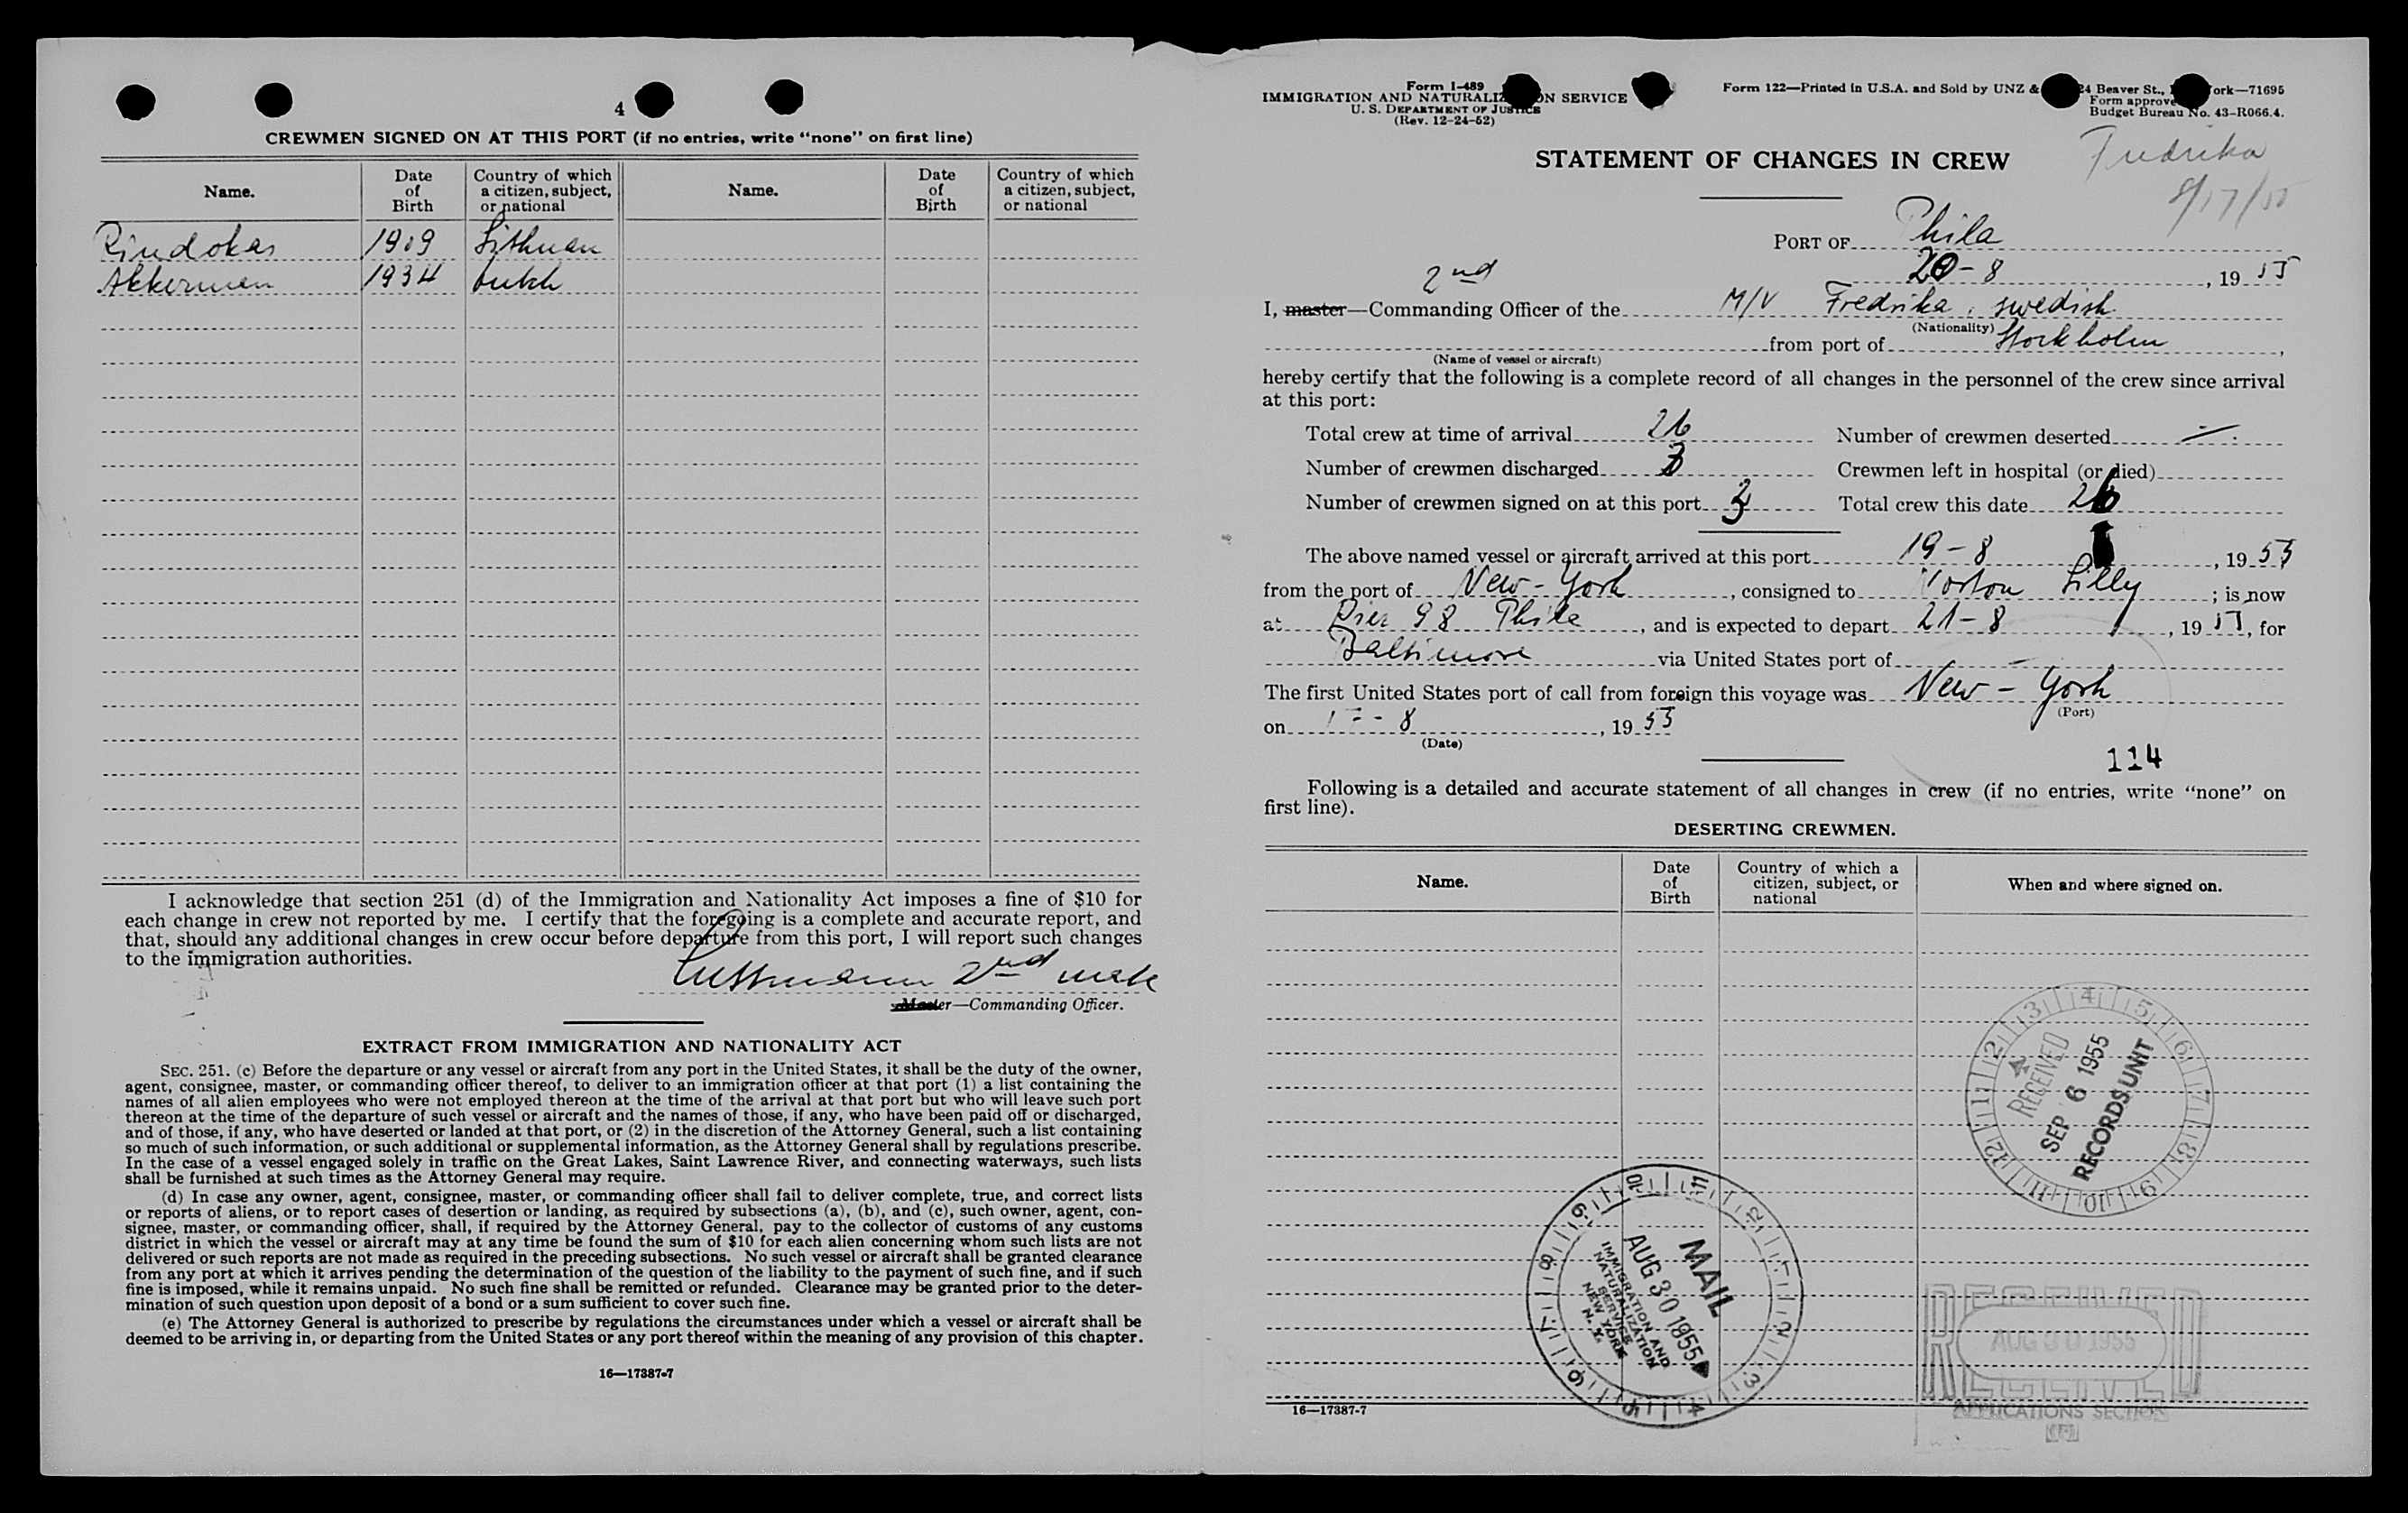 4
CREWMEN SIGNED ON AT THIS PORT (if no entries, write “none” on first line)
Name. Date of Birth Country of which a citizen, subject, or national Name. Date of Birth Country of which a citizen, subject, or national
Rindokas 1909 Lithuan
Akkerman 1934 Dutch
I acknowledge that section 251 (d) of the Immigration and Nationality Act imposes a fine of $10 for
each change in crew not reported by me. I certify that the foregoing is a complete and accurate report, and
that, should any additional changes in crew occur before departure from this port, I will report such changes
to the immigration authorities.
2nd mate
Master—Commanding Officer.
EXTRACT FROM IMMIGRATION AND NATIONALITY ACT
SEC. 251. (c) Before the departure or any vessel or aircraft from any port in the United States, it shall be the duty of the owner,
agent, consignee, master, or commanding officer thereof, to deliver to an immigration officer at that port (1) a list containing the
names of all alien employees who were not employed thereon at the time of the arrival at that port but who will leave such port
thereon at the time of the departure of such vessel or aircraft and the names of those, if any, who have been paid off or discharged,
and of those, if any, who have deserted or landed at that port, or (2) in the discretion of the Attorney General, such a list containing
so much of such information, or such additional or supplemental information, as the Attorney General shall by regulations prescribe.
In the case of a vessel engaged solely in traffic on the Great Lakes, Saint Lawrence River, and connecting waterways, such lists
shall be furnished at such times as the Attorney General may require.
(d) In case any owner, agent, consignee, master, or commanding officer shall fail to deliver complete, true, and correct lists
or reports of aliens, or to report cases of desertion or landing, as required by subsections (a), (b), and (c), such owner, agent, con-
signee, master, or commanding officer, shall, if required by the Attorney General, pay to the collector of customs of any customs
district in which the vessel or aircraft may at any time be found the sum of $10 for each alien concerning whom such lists are not
delivered or such reports are not made as required in the preceding subsections. No such vessel or aircraft shall be granted clearance
from any port at which it arrives pending the determination of the question of the liability to the payment of such fine, and if such
fine is imposed, while it remains unpaid. No such fine shall be remitted or refunded. Clearance may be granted prior to the deter-
mination of such question upon deposit of a bond or a sum sufficient to cover such fine.
(e) The Attorney General is authorized to prescribe by regulations the circumstances under which a vessel or aircraft shall be
deemed to be arriving in, or departing from the United States or any port thereof within the meaning of any provision of this chapter.
16—17387-7
Form I-489
IMMIGRATION AND NATURALIZ ON SERVICE
U. S. DEPARTMENT OF JUSTICE
(Rev. 12-24-52)
Form 122—Printed in U.S.A. and Sold by UNZ & 24 Beaver St., ork—71695
Form approve
Budget Bureau No. 43-R066.4.
Fredrika
8/17/55
STATEMENT OF CHANGES IN CREW
PORT OF Phila
20-8, 1955
2nd
I, master—Commanding Officer of the M/V Fredrika, swedish
(Nationality)
from port of Stockholm,
(Name of vessel or aircraft)
hereby certify that the following is a complete record of all changes in the personnel of the crew since arrival
at this port:
Total crew at time of arrival 26 Number of crewmen deserted —
Number of crewmen discharged Crewmen left in hospital (or died)
Number of crewmen signed on at this port Total crew this date 26
The above named vessel or aircraft arrived at this port 19-8, 1955
from the port of New-York, consigned to Norton Lilly; is now
at Pier 98 Phila, and is expected to depart 21-8, 1955, for
Baltimore via United States port of —
The first United States port of call from foreign this voyage was New-York
(Port)
on 8, 1955
(Date)
114
Following is a detailed and accurate statement of all changes in crew (if no entries, write “none” on
first line).
DESERTING CREWMEN.
Name. Date of Birth Country of which a citizen, subject, or national When and where signed on.
RECEIVED
SEP 6 1955
RECORDS UNIT
MAIL
AUG 30 1955
IMMIGRATION AND
NATURALIZATION
SERVICE
NEW YORK
N. Y.
RECEIVED
AUG 30 1955
RECEIVED
APPLICATIONS SECTION
16—17387-7